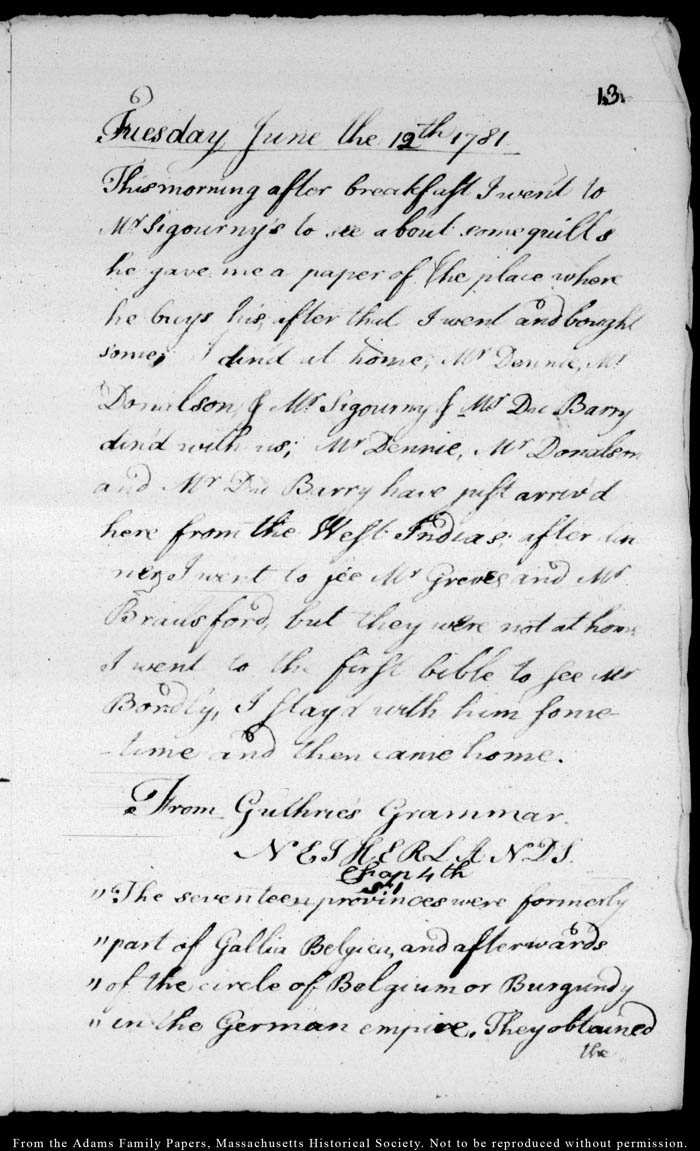 13.
Tuesday June the 12th 1781.
This morning after breakfast I went to
Mr Sigourny's to see about some quills
he gave me a paper of the place where
he buys his, after that I went and bought
some; I din'd at home, Mr Dennie, Mr
Donalson, & Mr Sigourny & Mr Du Barry
din'd with us; Mr Dennie, Mr Donalson
and Mr Du Barry have just arriv'd
here from the West Indias; after din
ner I went to see Mr Greves and Mr
Brailsford, but they were not at home
I went to the first bible to see Mr
Bordly, I stay'd with him some
time and then came home.
From Guthrie's Grammar.
NETHERLANDS.
Chap 4th
"The seventeen provinces were formerly
"part of Gallia Belgica, and afterwards
"of the circle of Belgium or Burgundy
"in the German empire. They obtained
the
From the Adams Family Papers, Massachusetts Historical Society. Not to be reproduced without permission.